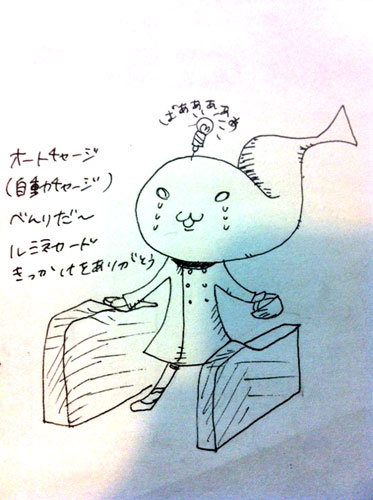 ぱああああぁ
オートチャージ
(自動チャージ)
べんりだ～
ルミネカード
きっかけをありがとう